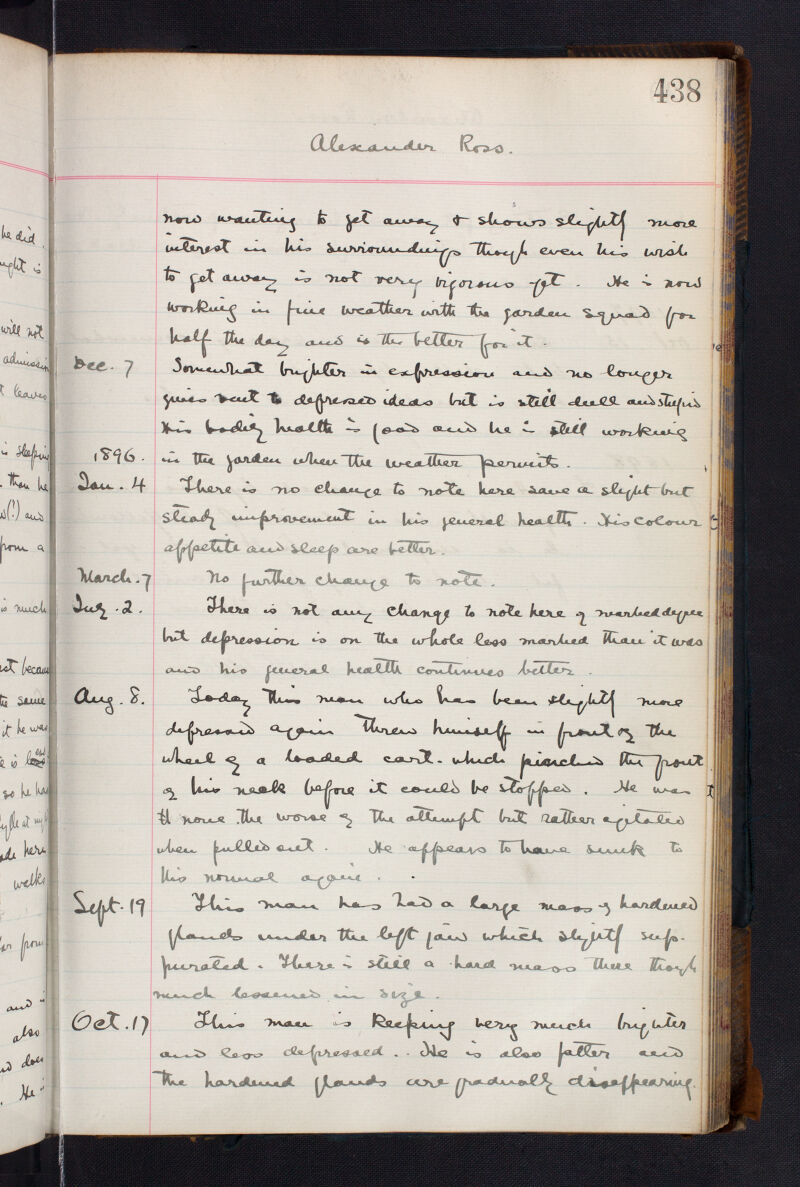 438
Alexander Ross.
now wanting to get away & shows slightly more
interest in his surroundings though even his wish
to get away is not very vigorous yet. He is now
working in fine weather with the garden squad for
half the day and is the better for it.
Dec. 7 Somewhat brighter in expression and no longer
gives vent to depressed ideas but is still dull and stupid
His bodily health is good and he is still working
1896. in the garden when the weather permits.
Jan. 4 There is no change to note here save a slight but
steady improvement in his general health. His colour
appetite and sleep are better.
March. 7 No further change to note.
July. 2. There is not any change to note here of marked degree
but depression is on the whole less marked than it was
and his general health continues better.
Aug. 8. Today this man who has been slightly more
depressed again threw himself in front of the
wheel of a loaded cart. which pinched the front
of his neck before it could be stopped. He was
none the worse of the attempt but rather agitated
when pulled out. He appears to have sunk to
his normal again.
Sept. 19 This man has had a large mass of hardened
glands under the left jaw which slightly sup-
purated. There is still a hard mass there though
much lessened in size.
Oct. 17 This man is keeping very much brighter
and less depressed.. He is also fatter and
the hardened glands are gradually disappearing.
he did.
will not
admission
leaves
is sleeping
than he
(?) and
from a
is much
the same
it he was
so he had
here
walks
from
and
also
He is